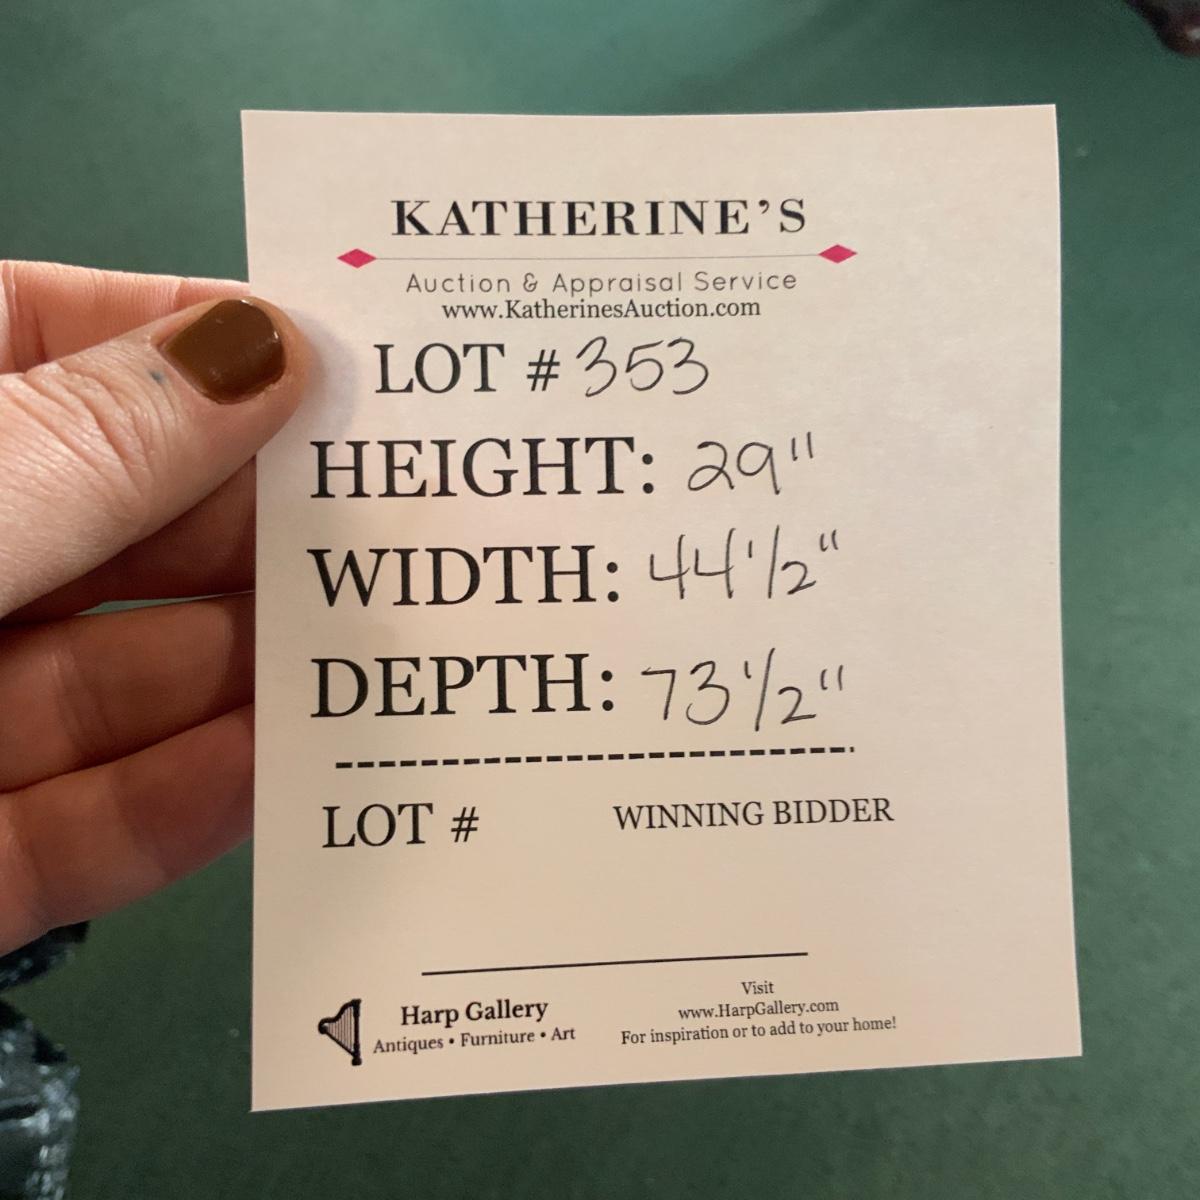 KATHERINE’S
Auction & Appraisal Service
www.KatherinesAuction.com
LOT # 353
HEIGHT: 29"
WIDTH: 44 1/2"
DEPTH: 73 1/2"
LOT # WINNING BIDDER
Harp Gallery
Antiques • Furniture • Art
Visit
www.HarpGallery.com
For inspiration or to add to your home!